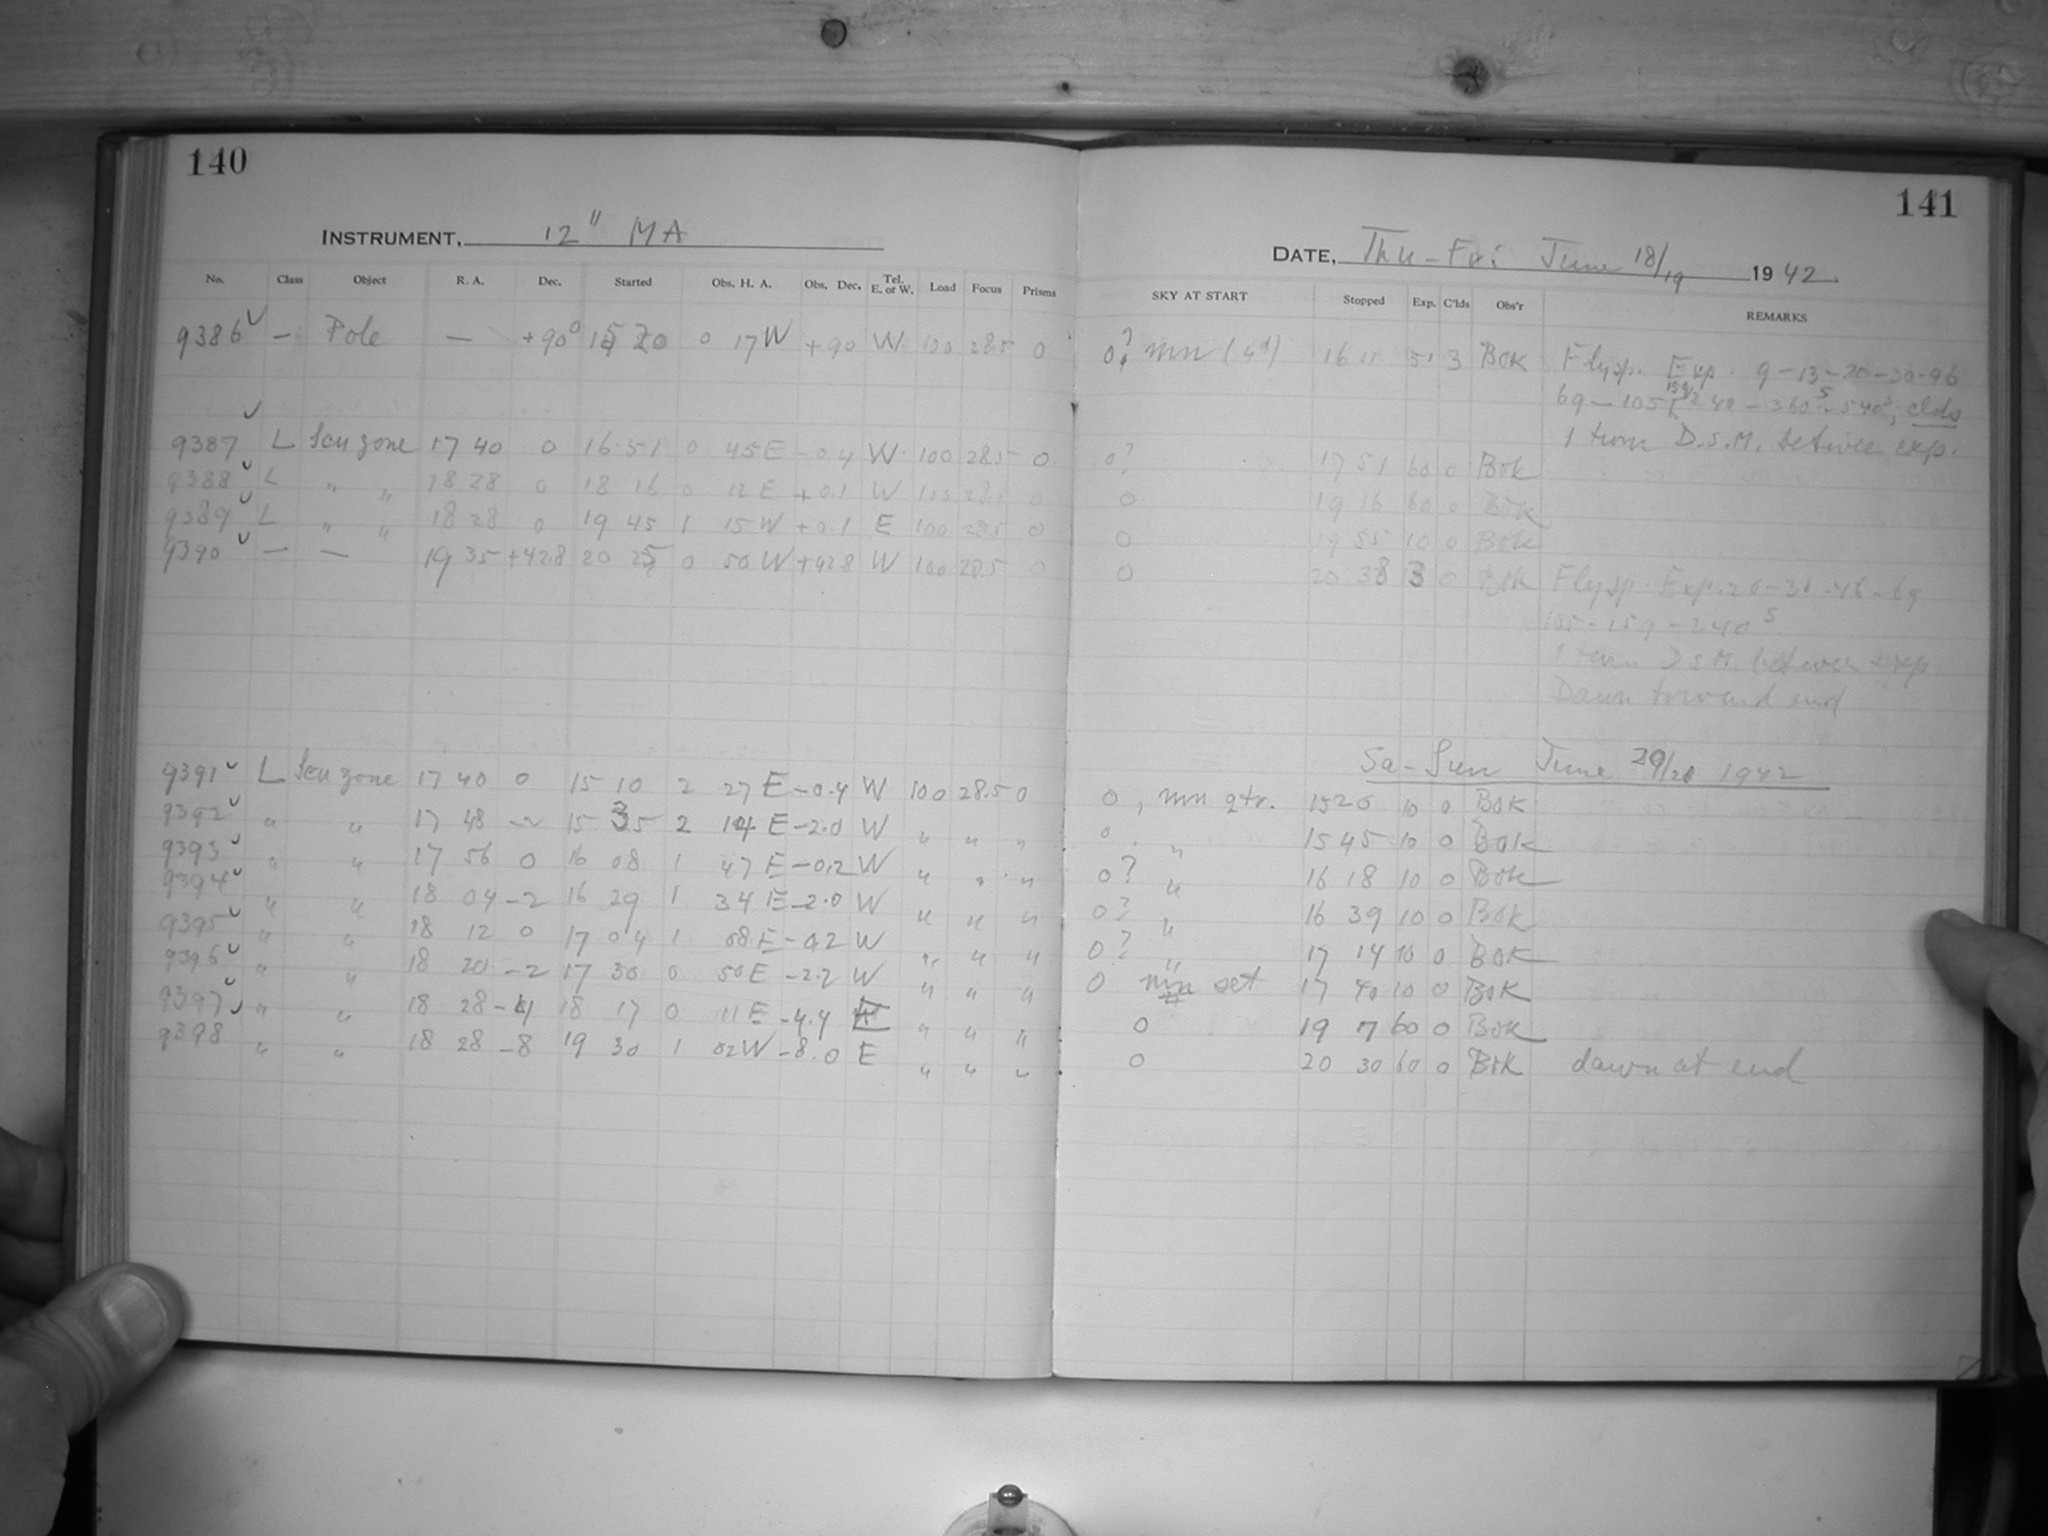 140
INSTRUMENT, 12" MA
No. Class Object R. A. Dec. Started Obs. H. A. Obs. Dec. Tel. E. or W. Load Focus Prisms
9386 — Pole — +90° 15 20 0 17 W +90 W 100 28.5 0
9387 L Scu zone 17 40 0 16 51 0 45 E -0.4 W 100 28.5 0
9388 L " " 18 28 0 18 16 0 12 E +0.1 W 100 28.5 0
9389 L " " 18 28 0 19 45 1 15 W +0.1 E 100 28.5 0
9390 — — 19 35 +42.8 20 25 0 50 W +42.8 W 100 28.5 0
9391 L Scu zone 17 40 0 15 10 2 27 E -0.4 W 100 28.5 0
9392 " " 17 48 -2 15 35 2 14 E -2.0 W " " "
9393 " " 17 56 0 16 08 1 47 E -0.2 W " " "
9394 " " 18 04 -2 16 29 1 34 E -2.0 W " " "
9395 " " 18 12 0 17 04 1 08 E -0.2 W " " "
9396 " " 18 20 -2 17 30 0 50 E -2.2 W " " "
9397 " " 18 28 -4 18 17 0 11 E -4.4 " " "
9398 " " 18 28 -8 19 30 1 02 W -8.0 E " " "
141
DATE, Thu-Fri June 18/19 1942
SKY AT START Stopped Exp. C'lds Obs'r REMARKS
0? mn 16 11 51 3 BOK Flysp. Exp. 9-13-20-30-46
69-105-159-240-360-540s, clds
1 turn D.S.M. between exp.
0? 17 51 60 0 BOK
0 19 16 60 0 BOK
0 19 55 10 0 BOK
0 20 38 3 0 BOK Flysp. Exp. 20-30-46-69
105-159-240s
1 turn D.S.M. between exp
Dawn toward end
Sa-Sun June 20/21 1942
0, mn qtr. 15 20 10 0 BOK
0 " 15 45 10 0 BOK
0? " 16 18 10 0 BOK
0? " 16 39 10 0 BOK
0? " 17 14 10 0 BOK
0 mn set 17 40 10 0 BOK
0 19 7 60 0 BOK
0 20 30 60 0 BOK dawn at end